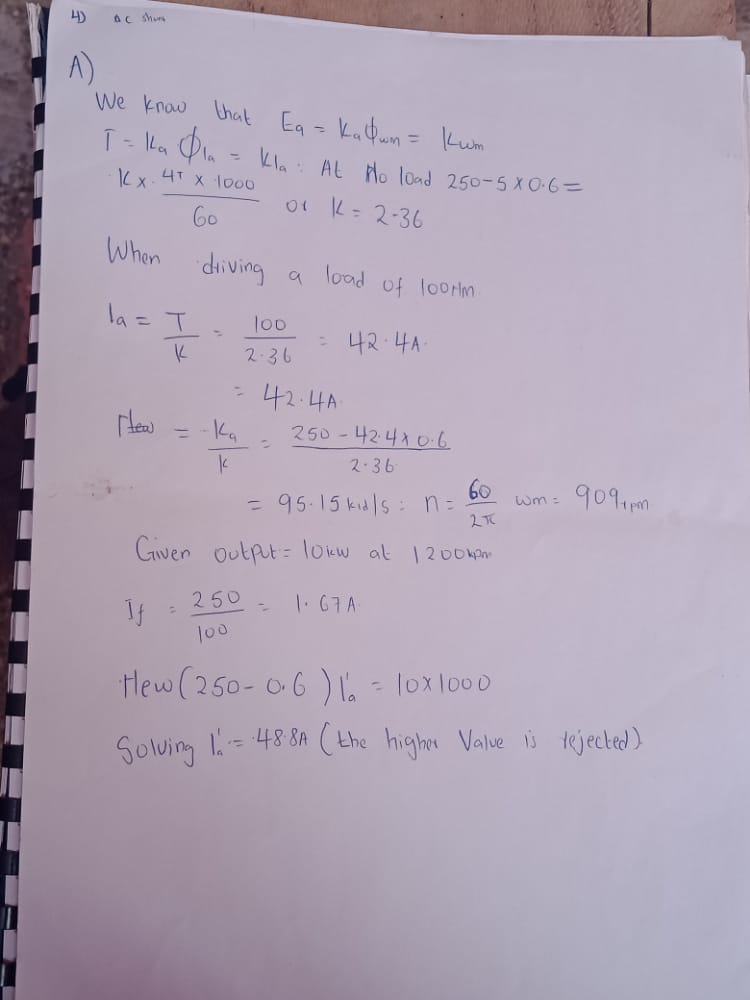 4) DC shunt
A)
We know that Ea = Kaϕwm = Kwm
T = Ka ϕIa = KIa : At No load 250-5 x 0.6 =
K x 4π x 1000 / 60 or K = 2.36
When driving a load of 100Nm
Ia = T / K = 100 / 2.36 = 42.4A.
= 42.4A.
= Ka / K = 250 - 42.4 x 0.6 / 2.36
= 95.15 rad/s : n = 60 / 2π wm = 909rpm
Given output = 10kw at 1200rpm
If = 250 / 100 = 1.67A.
New (250 - 0.6) I'a = 10 x 1000
Solving I'a = 48.8A (the higher Value is rejected)